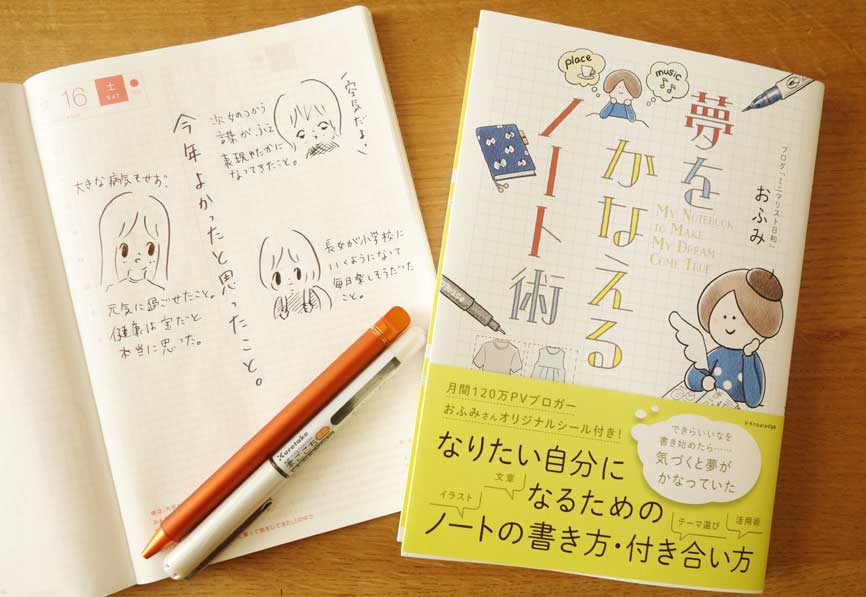 16
土
SAT
今年よかったと思ったこと。
空気だよ、
次女のつかう
言葉がふえ
表現ゆたかに
なってきたこと。
大きな病気もせず
元気に過ごせたこと。
健康は宝だと
本当に思った。
長女が小学校に
いくようになって
毎日楽しそうだった
こと。
Kuretake
place
music
夢を
かなえる
ノート術
MY NOTEBOOK
TO MAKE
MY DREAM
COME TRUE
ブログ「ミニマリスト日和」
おふみ
X-Knowledge
月間120万PVブロガー
おふみさんオリジナルシール付き!
できたらいいなを
書き始めたら……
気づくと夢が
かなっていた
なりたい自分に
なるための
ノートの書き方・付き合い方
文章
イラスト
テーマ選び
活用術